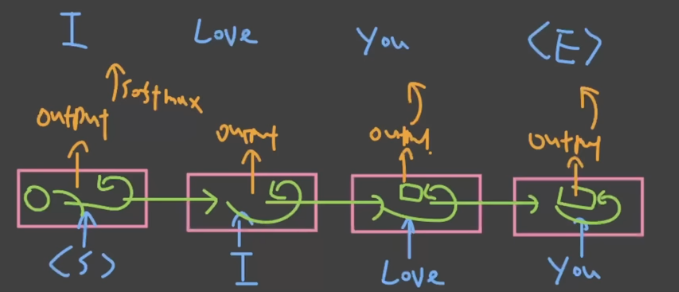 I Love You <E>
softmax
output output output output
<S> I Love You